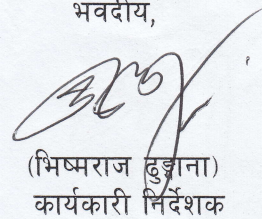 भवदीय,
(भिष्मराज ढुङ्गाना)
कार्यकारी निर्देशक